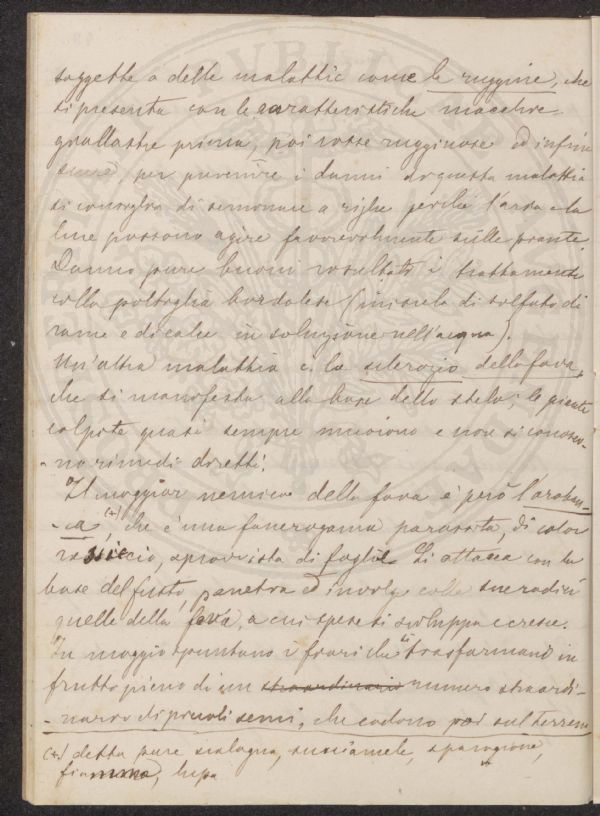 soggette a delle malattie come le ruggine, che
si presenta con le caratteristiche macchie
giallastre prima, poi rosse rugginose ed infine
scure per prevenire i danni di questa malattia
si consiglia di seminare a righe perchè l'aria e la
luce possono agire favorevolmente sulle piante.
Danno pure buoni risultati i trattamenti
colla poltiglia bordolese (miscela di solfato di
rame e di calce in soluzione nell'acqua).
Un'altra malattia è la sclerozio della fava,
che si manifesta alla base dello stelo; le piante
colpite quasi sempre muoiono e non si conosco-
-no rimedi diretti.
Il maggior nemico della fava è però l'oroban-
-ca (+), che è una fanerogama parassita, di color
rossiccio, sprovvista di foglie. Si attacca con la
base del fusto, penetra ed involge colle sue radici
quelle della fava, a cui spese si sviluppa e cresce.
In maggio spuntano i fiori che si trasformano in
frutto pieno di un straordinario numero straordi-
-nario di piccoli semi, che cadono poi sul terreno
(+) detta pure scalogna, succiamele, sparagione,
fiamma, lupa